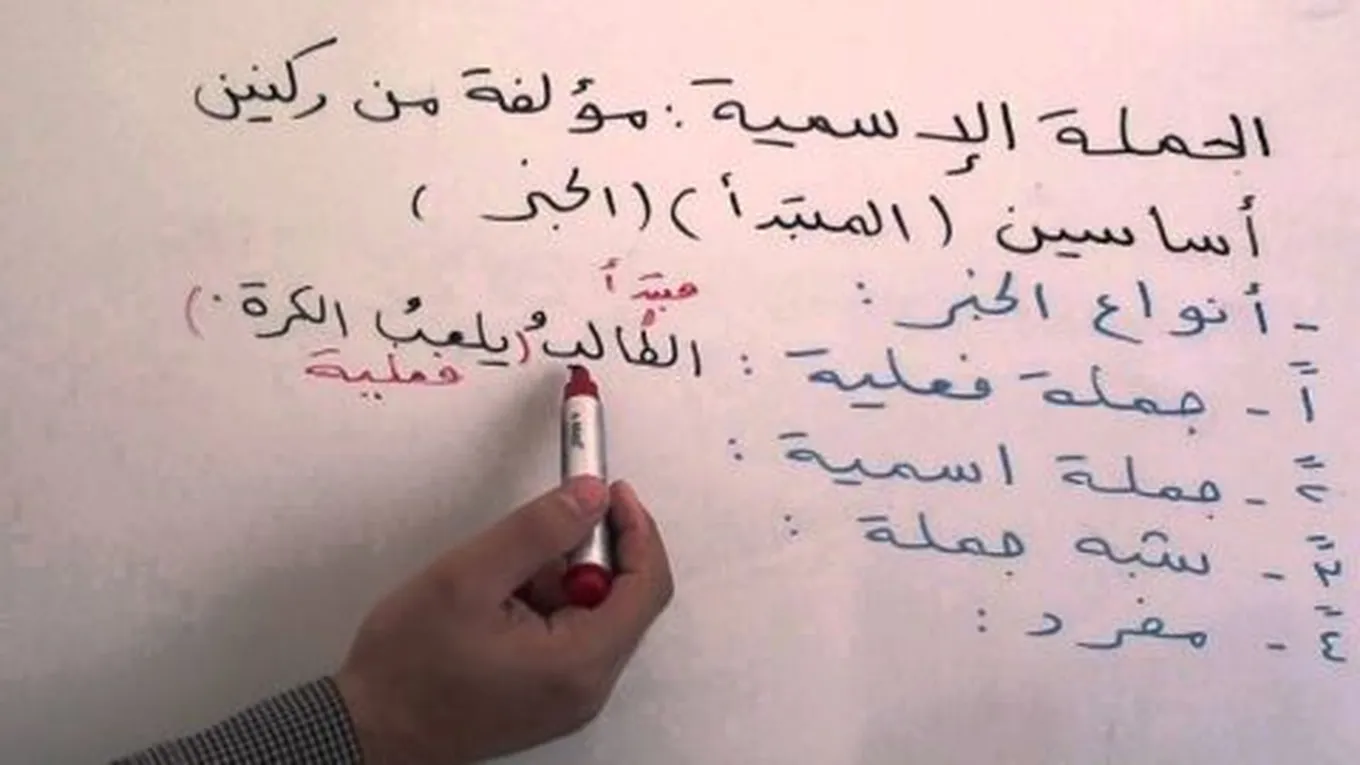 الجملة الإسمية : مؤلفة من ركنين
أساسين ( المبتدأ ) ( الخبر )
- أنواع الخبر :
مبتدأ
١ - جملة فعلية : الطالبُ ( يلعبُ الكرة . )
فعلية
٢ - جملة اسمية :
٣ - شبه جملة :
٤ - مفرد :